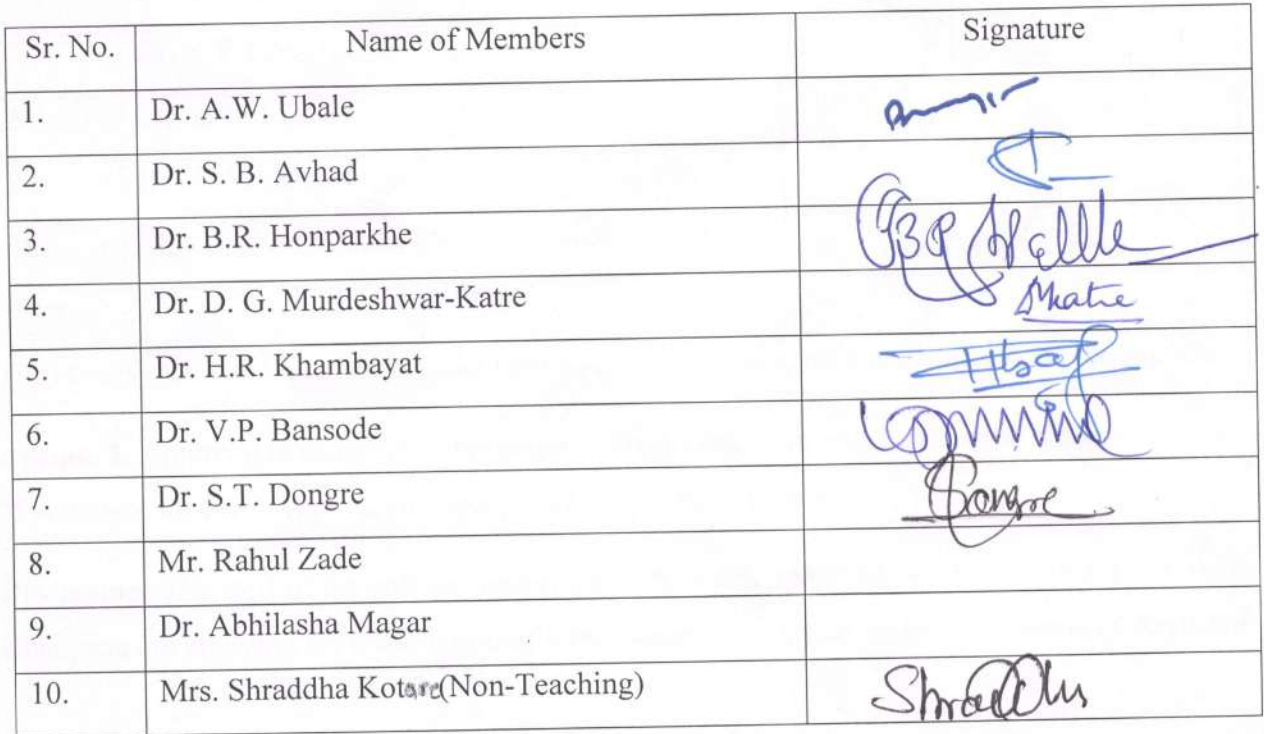 Sr. No. Name of Members Signature
1. Dr. A.W. Ubale
2. Dr. S. B. Avhad
3. Dr. B.R. Honparkhe
4. Dr. D. G. Murdeshwar-Katre
5. Dr. H.R. Khambayat
6. Dr. V.P. Bansode
7. Dr. S.T. Dongre Dongre
8. Mr. Rahul Zade
9. Dr. Abhilasha Magar
10. Mrs. Shraddha (Non-Teaching)